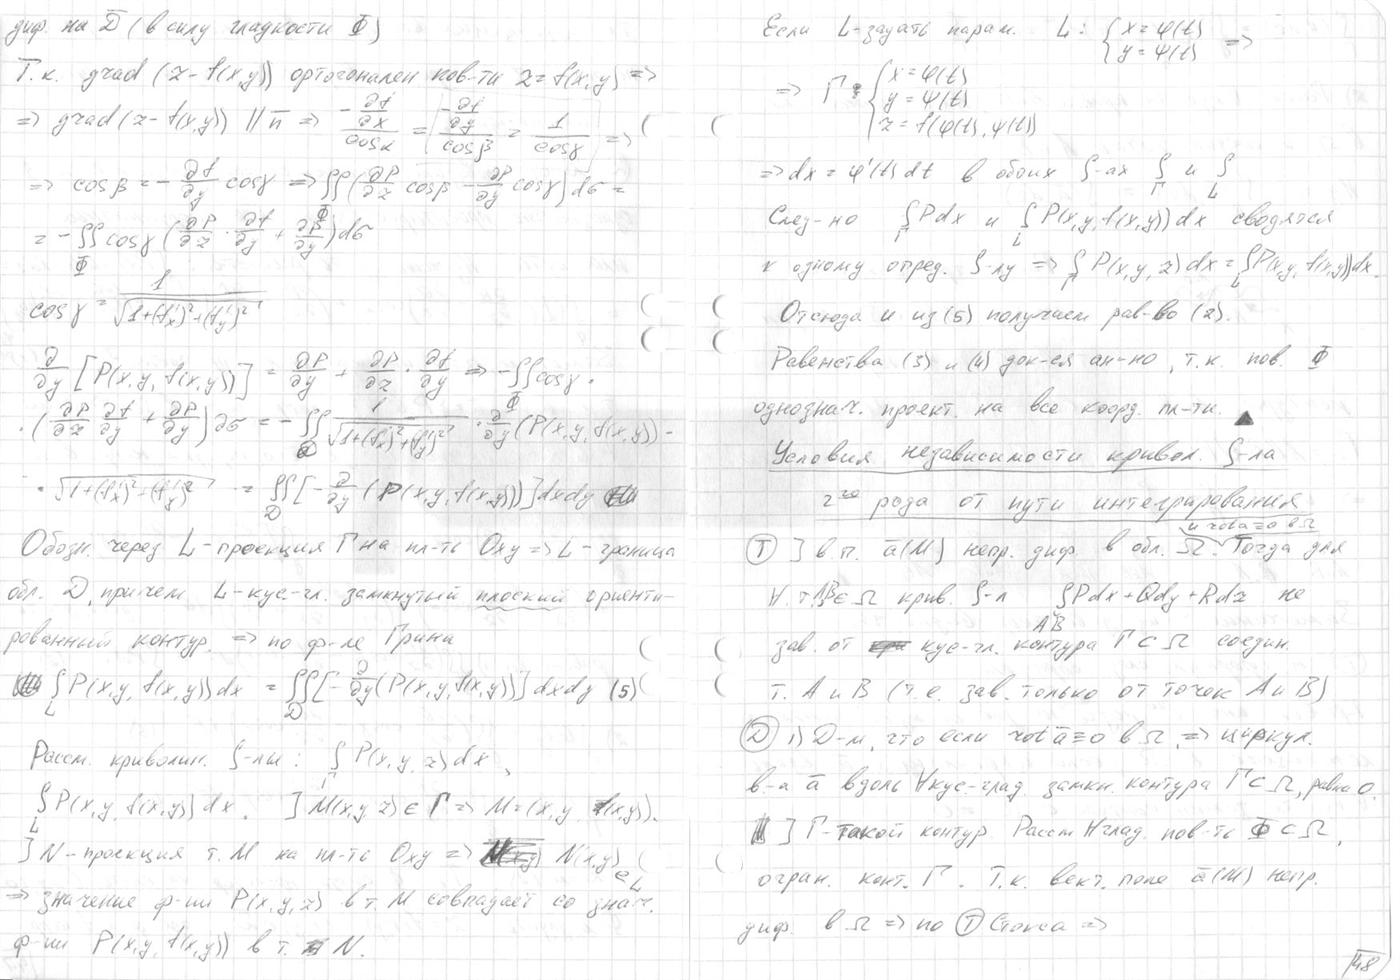 диф. на D̅ (в силу гладкости Φ)
Т.к. grad (z - f(x,y)) ортогонален пов-ти z = f(x,y) =>
=> grad(z - f(x,y)) || n̅ => (-∂f/∂x)/cosα = (-∂f/∂y)/cosβ = 1/cosγ =>
=> cosβ = -∂f/∂y cosγ => ∬_Φ (∂P/∂z cosβ - ∂P/∂y cosγ) dσ =
= -∬_Φ cosγ (∂P/∂z · ∂f/∂y + ∂P/∂y) dσ
cosγ = 1/√(1+(f'x)²+(f'y)²)
∂/∂y [P(x,y,f(x,y))] = ∂P/∂y + ∂P/∂z · ∂f/∂y => -∬_Φ cosγ ·
· (∂P/∂z ∂f/∂y + ∂P/∂y) ∂σ = -∬_D 1/√(1+(f'x)²+(f'y)²) · ∂/∂y (P(x,y,f(x,y)) ·
· √(1+(f'x)²+(f'y)²) = ∬_D [-∂/∂y (P(x,y,f(x,y))] dxdy
Обозн. через L - проекция Г на пл-ть Oxy => L - граница
обл. D, причем L - кус-гл. замкнутый плоский ориенти-
рованный контур. => по ф-ле Грина
∫_L P(x,y,f(x,y)) dx = ∬_D [-∂/∂y (P(x,y,f(x,y))] dxdy (5)
Рассм. криволин. ∫-лы: ∫_Г P(x,y,z) dx,
∫_L P(x,y,f(x,y)) dx. ] M(x,y,z) ∈ Г => M = (x,y,f(x,y)).
] N - проекция т. M на пл-ть Oxy => N(x,y) ∈ L
=> значение ф-ии P(x,y,z) в т. M совпадает со знач.
ф-ии P(x,y,f(x,y)) в т. N.
Если L - задать парам. L: { x = φ(t) y = ψ(t) =>
=> Г: { x = φ(t) y = ψ(t) z = f(φ(t),ψ(t))
=> dx = φ'(t)dt в обоих ∫-ах ∫_Г и ∫_L
След-но ∫_Г Pdx и ∫_L P(x,y,f(x,y)) dx сводятся
к одному опред. ∫-лу => ∫_Г P(x,y,z) dx = ∫_L P(x,y,f(x,y)) dx.
Отсюда и из (5) получаем рав-во (2).
Равенства (3) и (4) док-ся ан-но, т.к. пов. Φ
однознач. проект. на все коорд. пл-ти. ▲
Условия независимости кривол. ∫-ла
2го рода от пути интегрирования
и rot a̅ ≡ 0 в Ω
(Т) ] в.п. a̅(M) непр. диф. в обл. Ω. Тогда для
∀ т. A,B ∈ Ω крив. ∫-л ∫_AB Pdx + Qdy + Rdz не
зав. от кус-гл. контура Г ⊂ Ω соедин.
т. A и B (т.е. зав. только от точек A и B)
(D) 1) D-м, что если rot a̅ ≡ 0 в Ω, => циркул.
в-а a̅ вдоль ∀ кус-глад. замкн. контура Г ⊂ Ω, равна 0.
] Г - такой контур. Рассм ∀ глад. пов-ть Φ ⊂ Ω,
огран. конт. Г. Т.к. вект. поле a̅(M) непр.
диф. в Ω => по (Т) Стокса =>
48